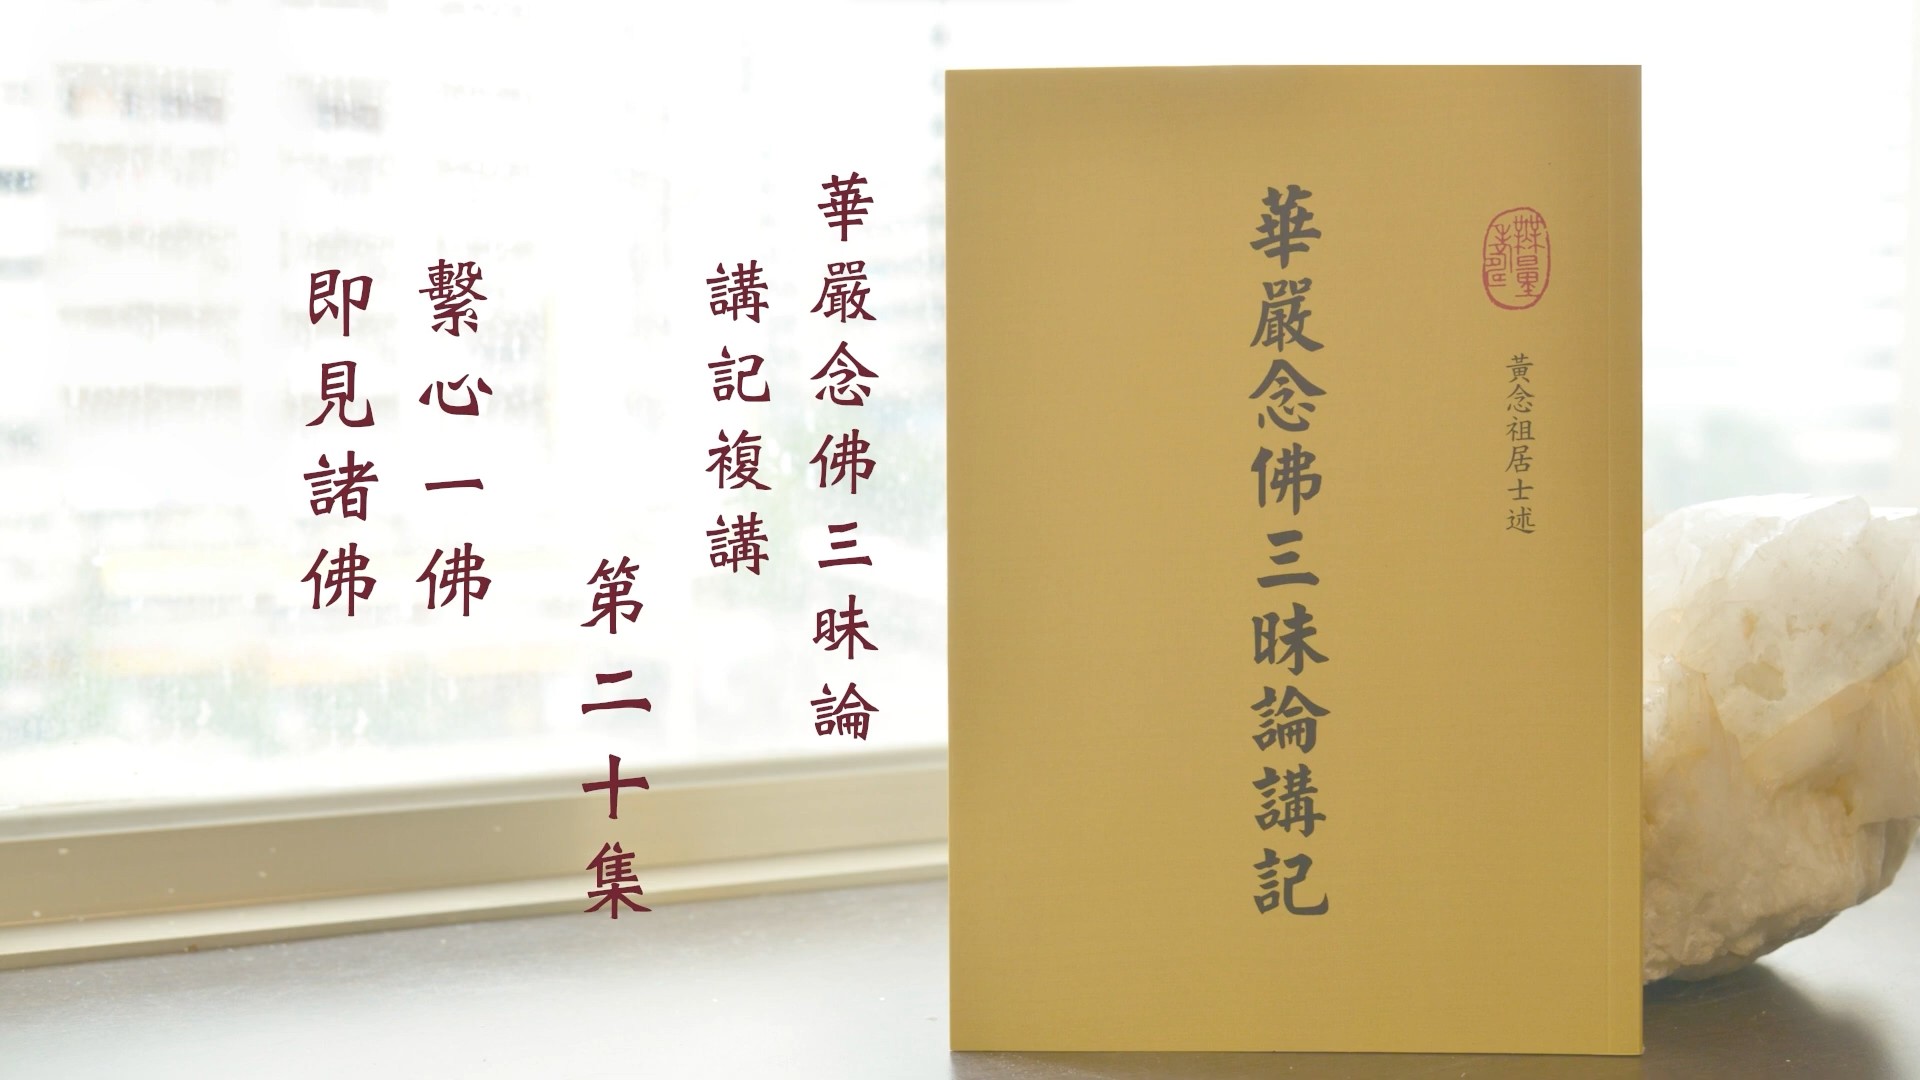 黃念祖居士述
華嚴念佛三昧論講記
華嚴念佛三昧論
講記複講
第二十集
繫心一佛
即見諸佛